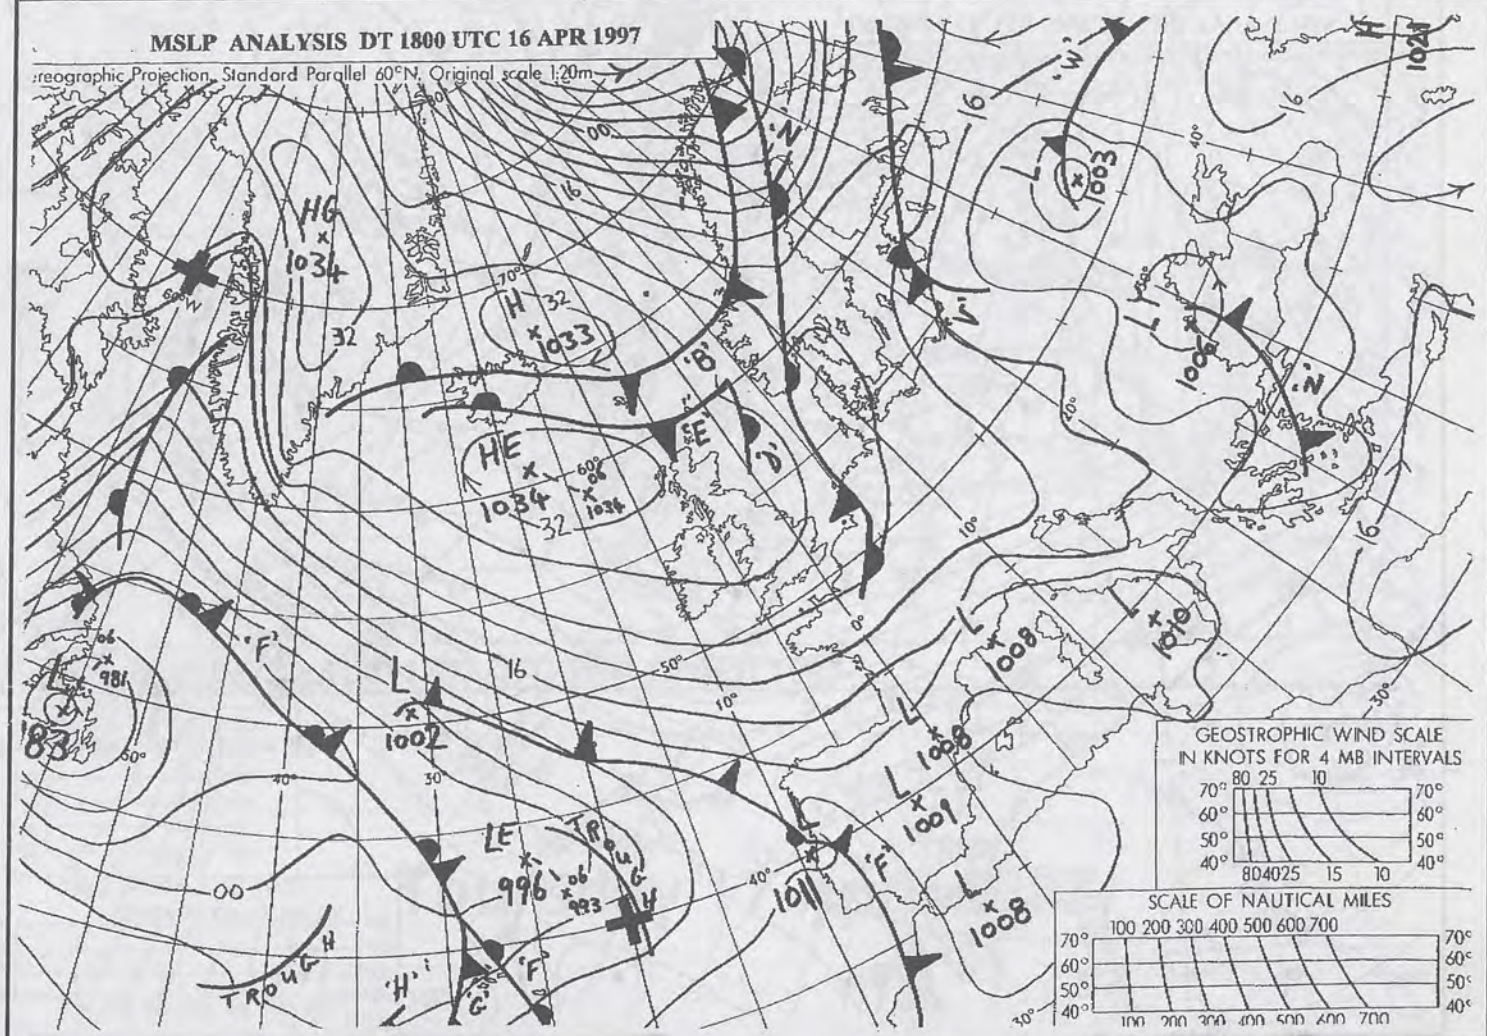 MSLP ANALYSIS DT 1800 UTC 16 APR 1997
:reographic Projection, Standard Parallel 60°N, Original scale 1:20m
80
00
'N'
16
'W'
16
40°
H
1021
16
L
1003
HG
1034
60°W
32
70°
H 32
1033
'B'
L
1006
'N'
40°
HE
1034
60°
06
1034
32
'E'
10°
16
'F'
0°
06
981
L
83
50°
L
1002
16
50°
10°
L
1008
L
1010
30°
L
1008
40°
30°
L
1009
LE
996
06
993
TROUGH
40°
L
1011
'F'
L
1008
00
TROUGH
'H'
'G'
'F'
30°
GEOSTROPHIC WIND SCALE
IN KNOTS FOR 4 MB INTERVALS
80 25 10
70° 70°
60° 60°
50° 50°
40° 40°
80 40 25 15 10
SCALE OF NAUTICAL MILES
100 200 300 400 500 600 700
70° 70°
60° 60°
50° 50°
40° 40°
100 200 300 400 500 600 700